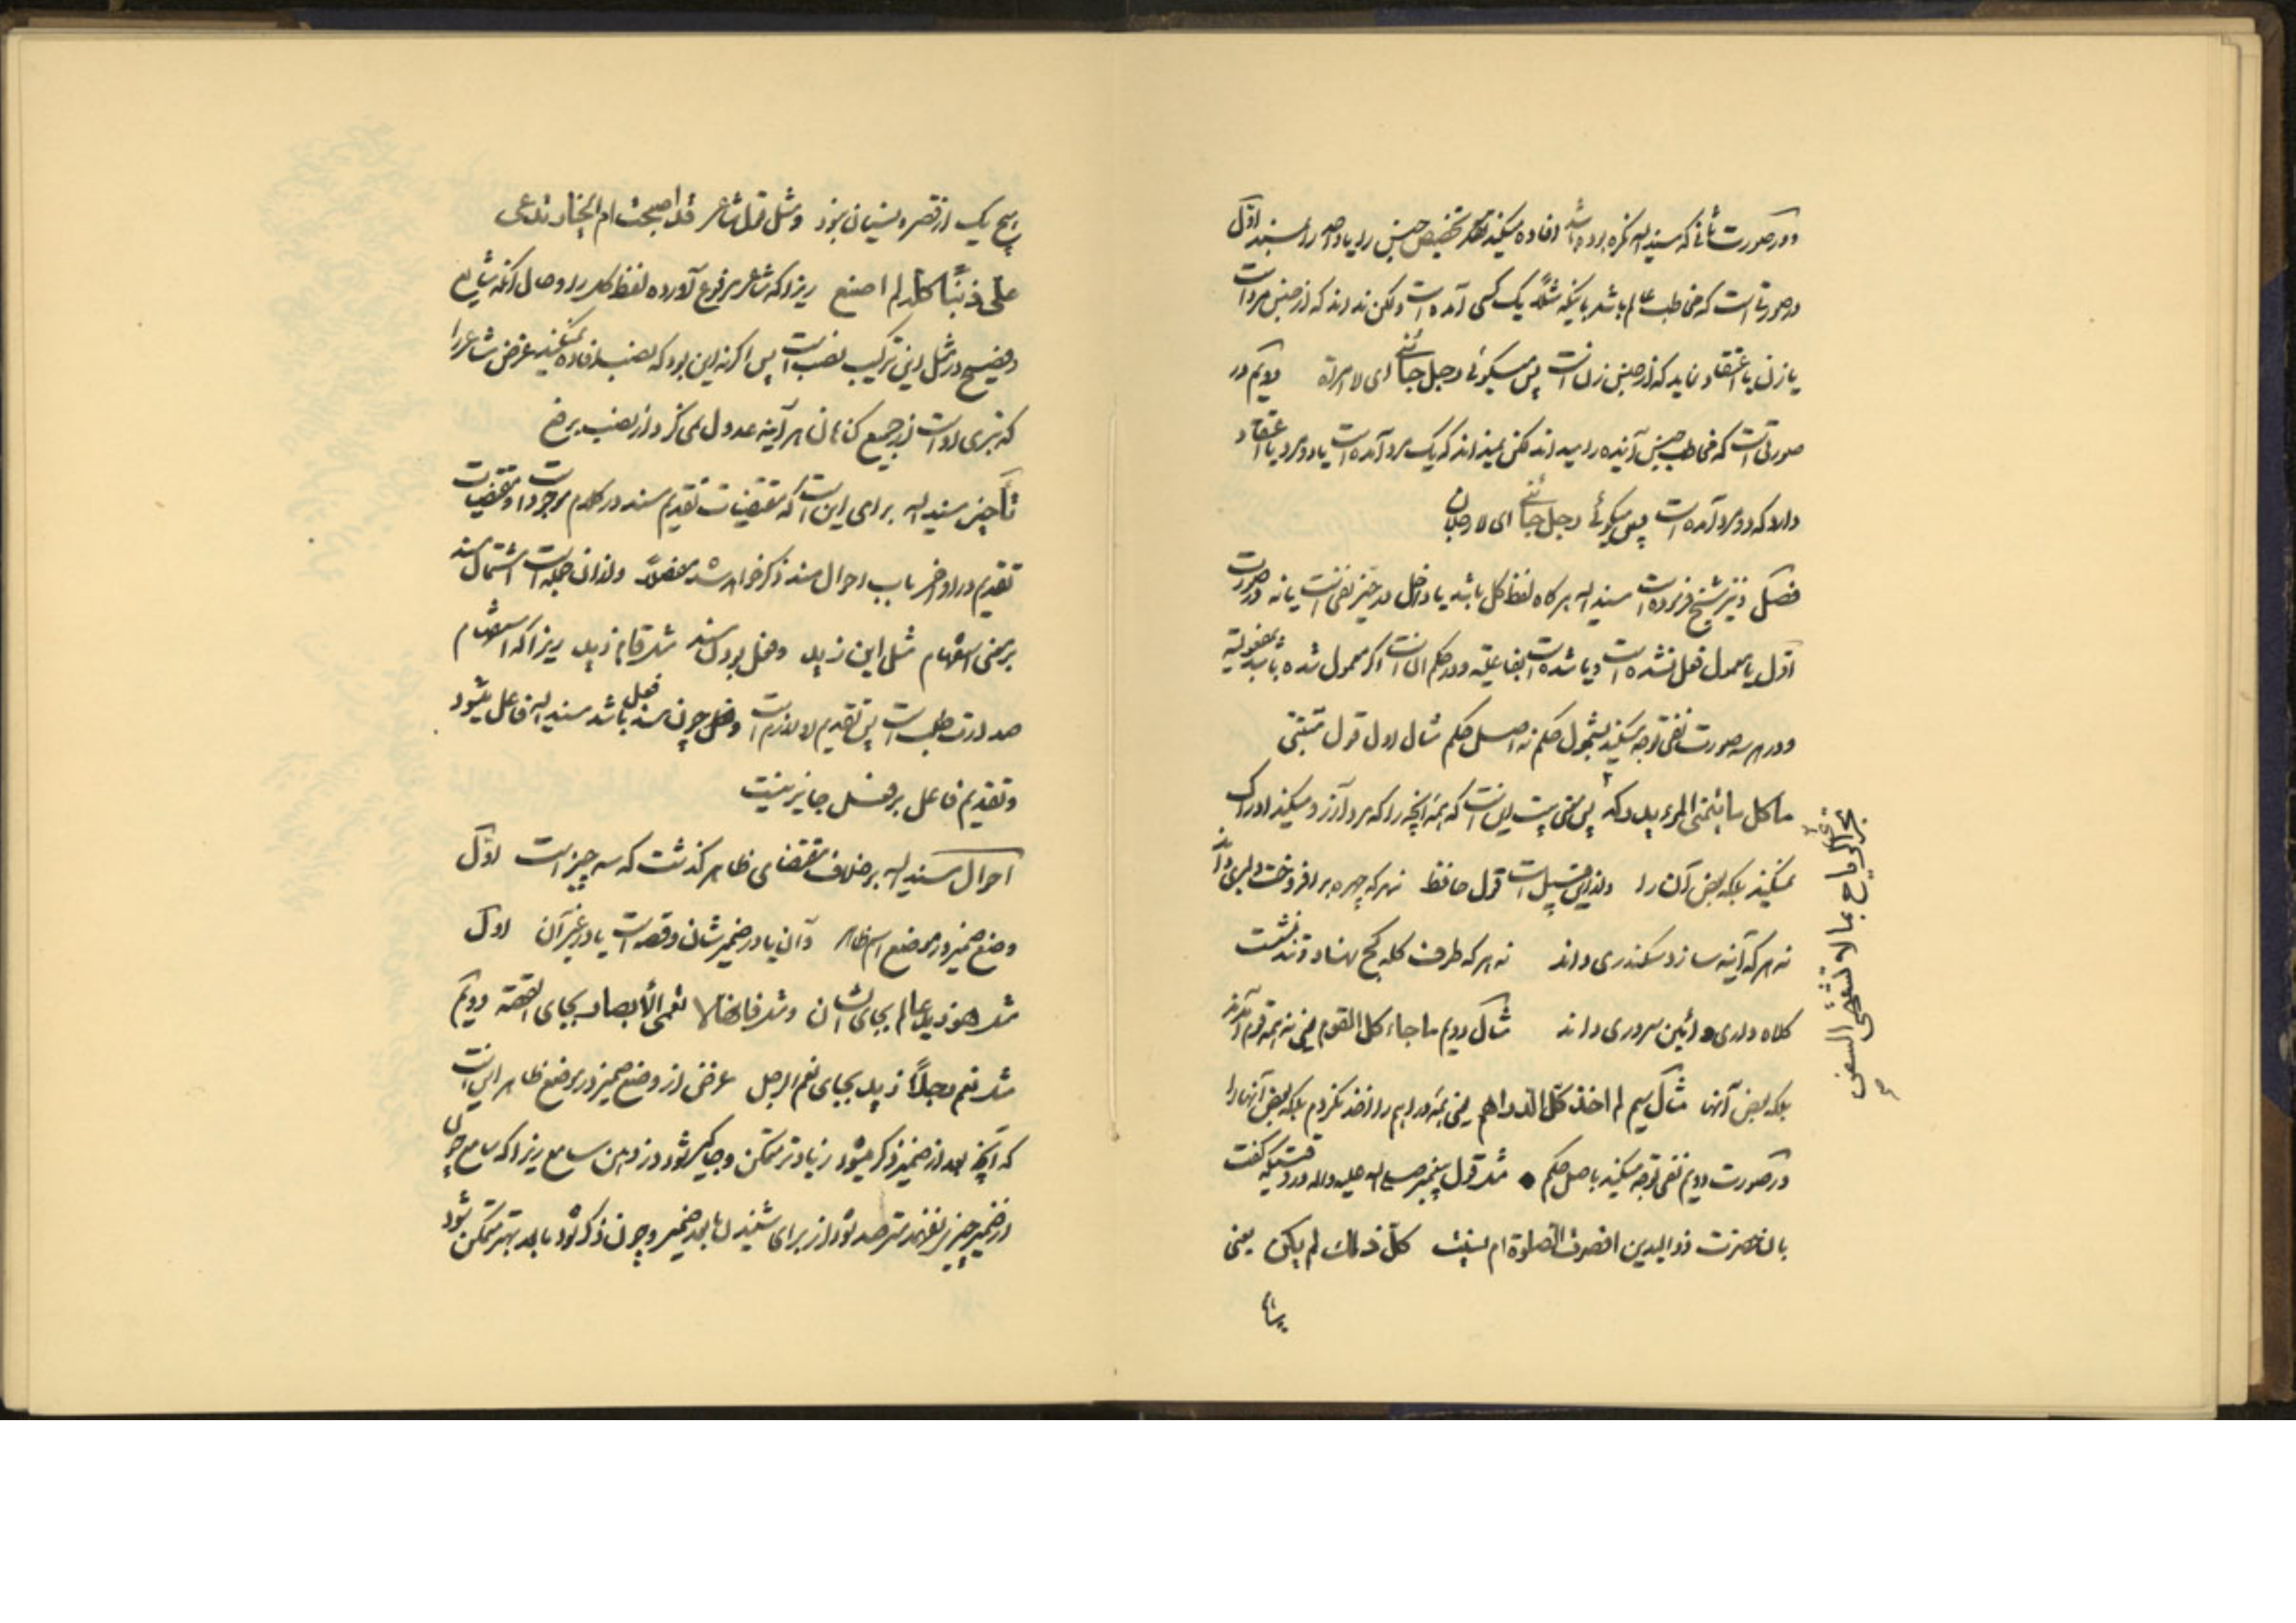 و در صورت ثانی که مسند الیه نکره بوده باشد افاده میکند تخصیص جنس را یا واحد را بمسند اوّل
در صورتی است که مخاطب عالم باشد باینکه مثلاً یک کسی آمده است ولکن نداند که از جنس مرد است
یا زن یا اعتقاد نماید که از جنس زن است پس میگوئی رجل جائنی ای لا امراة دویّم در
صورتی است که مخاطب جنس آینده را میداند لکن نمیداند که یک مرد آمده است یا دو مرد یا اعتقاد
دارد که دو مرد آمده است پس میگوئی رجل جائنی ای لا رجلان
فصل و نیز شیخ فرموده است مسند الیه هر کاه لفظ کل باشد یا داخل در حیّز نفی است یا نه در صورت
اوّل یا معمول فعل نشده است و یا شده است بفاعلیّة و در حکم آن است اکر معمول شده باشد بمفعولیّة
و در هر سه صورت نفی توجه میکند بشمول حکم نه اصل حکم مثال اول قول متنبّی
ما کل ما یتمنی المرء یدرکه پس معنی بیت این است که همه آنچه را که مرد آرزو میکند ادراک
نمیکند بلکه بعض آن را و از این قبیل است قول حافظ نه هر که چهره بر افروخت دلبری داند
نه هر که آینه سازد سکندری داند نه هر که طرف کله کج نهاد و تند نشست
کلاه داری و آئین سروری داند مثال دویم ما جاء کل القوم یعنی نه همه قوم آمدند
بلکه بعض آنها مثال سیم لم اخذ کلّ الدراهم یعنی همه دراهم را اخذ نکردم بلکه بعض آنها را
و در صورت دویم نفی توجه میکند باصل حکم مثل قول پیغمبر صلی الله علیه و اله در وقتیکه کفت
بآن حضرت ذو الیدین اقصرت الصلوة ام نسیت کلّ ذلک لم یکن یعنی
الریاح بما لا تشتهی السفن
هیچ یک از قصر و نسیان نبود و مثل قول شاعر قد اصبحت ام الخیار تدعی
علی ذنبًا کله لم اصنع زیرا که شاعر مرفوع آورده لفظ کل را و حال آنکه شایع
و فصیح در مثل این ترکیب نصب است پس اکر نه این بود که نصب افاده نمیکند غرض شاعر را
که تبری او است از جمیع کناهان هر آینه عدول نمیکرد از نصب برفع
تأخیر مسند الیه برای این است که مقتضیات تقدیم مسند در کلام موجود است و مقتضیات
تقدیم در اواخر باب احوال مسند ذکر خواهد شد مفصلاً و از آن جمله است اشتمال مسند
بر معنی استفهام مثل این زید و فعل بودن مسند مثل قام زید زیرا که استفهام
صدارت طلب است پس تقدیم او لازم است و فعل چون مسند باشد مسند الیه فاعل میشود
و تقدیم فاعل بر فعل جایز نیست
احوال مسند الیه بر خلاف مقتضای ظاهر کذشت که سه چیز است اوّل
وضع ضمیر در موضع اسم ظاهر و آن یا در ضمیر شان و قصه است یا در غیر آن اول
مثل هو زید عالم بجای الشان و مثل فانها لا تعمی الأبصار بجای القصّة دویّم
مثل نعم رجلاً زید بجای نعم الرجل غرض از وضع ضمیر در موضع ظاهر این است
که آنچه بعد از ضمیر ذکر میشود زیادتر متمکن و جایکیر شود در ذهن سامع زیرا که سامع چون
از ضمیر چیزی نفهمد مترصد شود از برای شنیدن ما بعد ضمیر و چون ذکر شود ما بعد بهتر متمکن شود